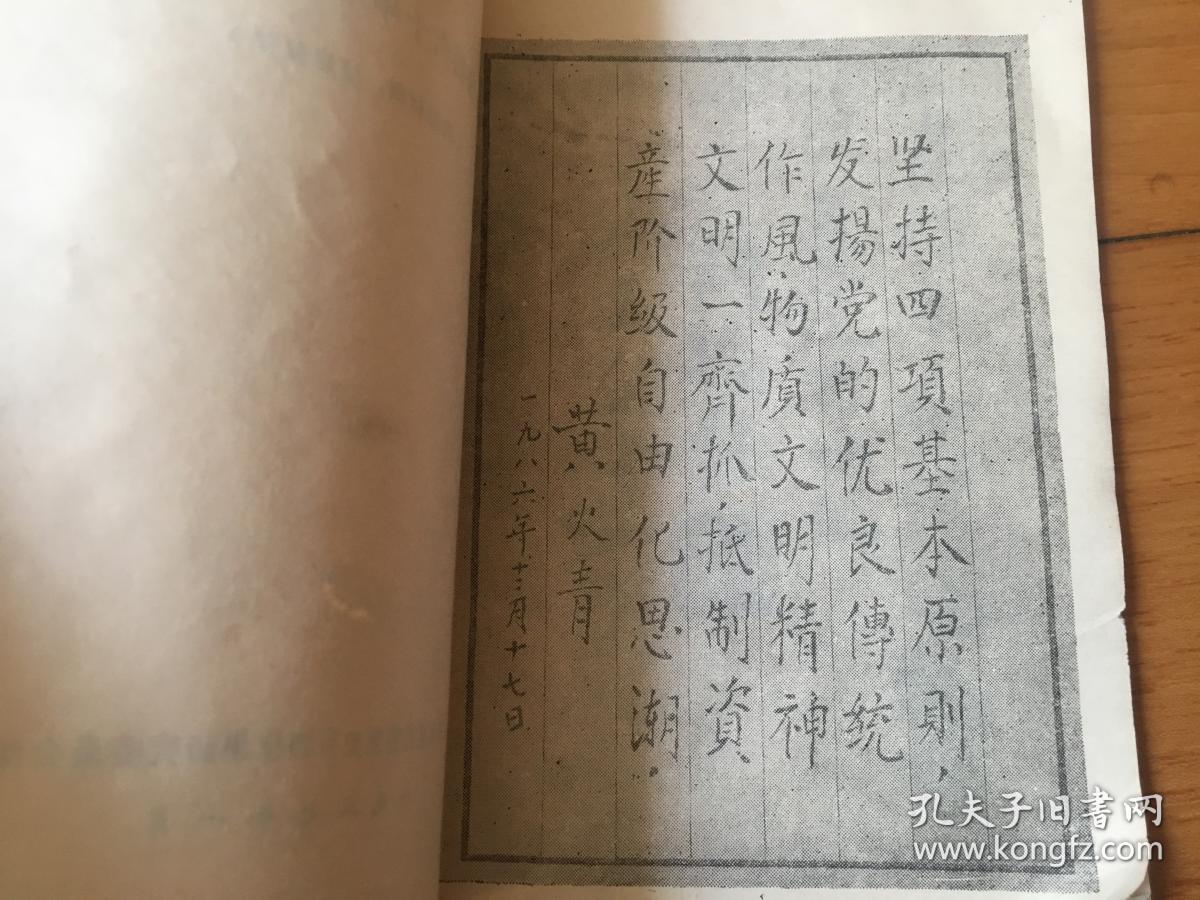 坚持四項基本原則，
发揚党的优良傳统
作風，物质文明精神
文明一齊抓，抵制資
產阶級自由化思潮，
黄火青
一九八六年十二月十七日
孔夫子旧書网
www.kongfz.com